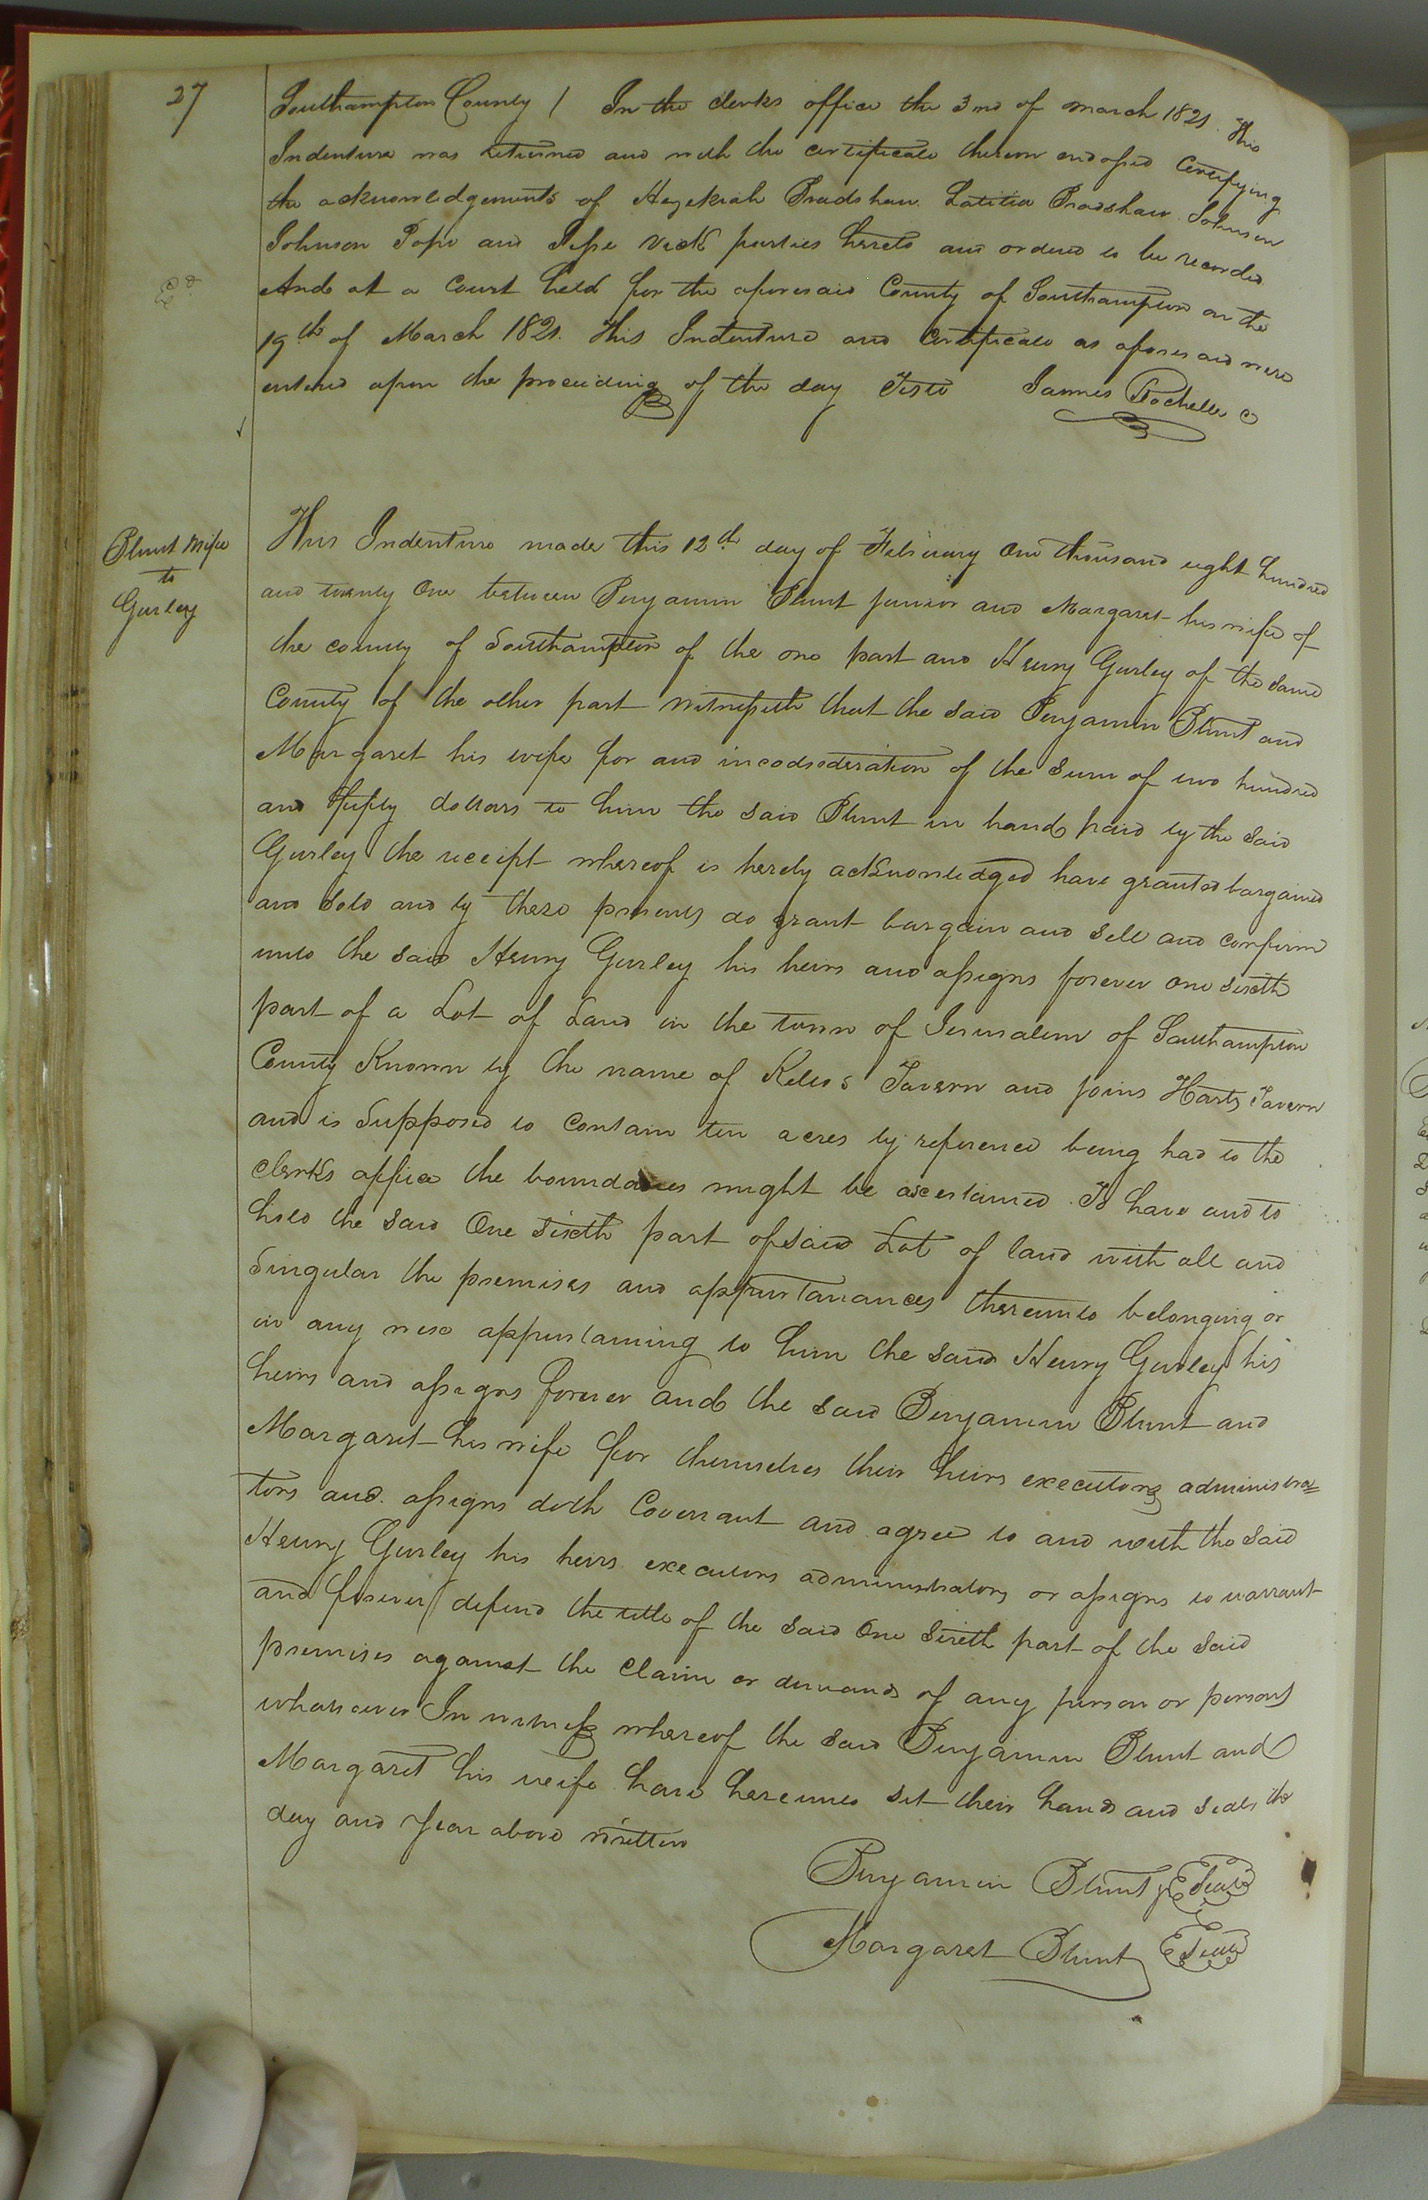 27
Southampton County / In the clerks office the 3rd of march 1821. This
Indenture was returned and with the certificate thereon endorsed Certifying
the acknowledgements of Hezekiah Bradshaw Latitia Bradshaw Johnson
Johnson Pope and Jesse Vick parties hereto and ordered to be recorded
And at a Court held for the aforesaid County of Southampton on the
19th of March 1821. This Indenture and Certificate as aforesaid were
entered upon the proceedings of the day Teste James Rochelle C
Blunt & Wife
to
Gurley
This Indenture made this 12th day of February One thousand eight hundred
and twenty One between Benjamin Blunt junior and Margaret his wife of
the county of Southampton of the one part and Henry Gurley of the same
County of the other part Witnesseth that the said Benjamin Blunt and
Margaret his wife for and incodsoderation of the sum of two hundred
and fifty dollars to him the said Blunt in hand paid by the said
Gurley the receipt whereof is hereby acknowledged have granted bargained
and sold and by these presents do grant bargain and sell and confirm
unto the said Henry Gurley his heirs and assigns forever one sixth
part of a Lot of Land in the town of Jerusalem of Southampton
County Known by the name of Kellos Tavern and joins Harts Tavern
and is Supposed to contain ten acres by reference being had to the
clerks office the boundaries might be ascertained To have and to
hold the said One sixth part of said Lot of land with all and
Singular the premises and appurtanances thereunto belonging or
in any wise appurtaining to him the said Henry Gurley his
heirs and assigns forever and the said Benjamin Blunt and
Margaret his wife for themselves their heirs executors administra=
tors and assigns doth Covenant and agree to and with the said
Henry Gurley his heirs executors administrators or assigns to warrant
and forever defend the title of the said One sixth part of the said
premises against the claim or demands of any person or persons
whatsoever In witness whereof the said Benjamin Blunt and
Margaret his wife have hereunto set their hands and seals the
day and year above written
Benjamin Blunt jr Seal
Margaret Blunt Seal